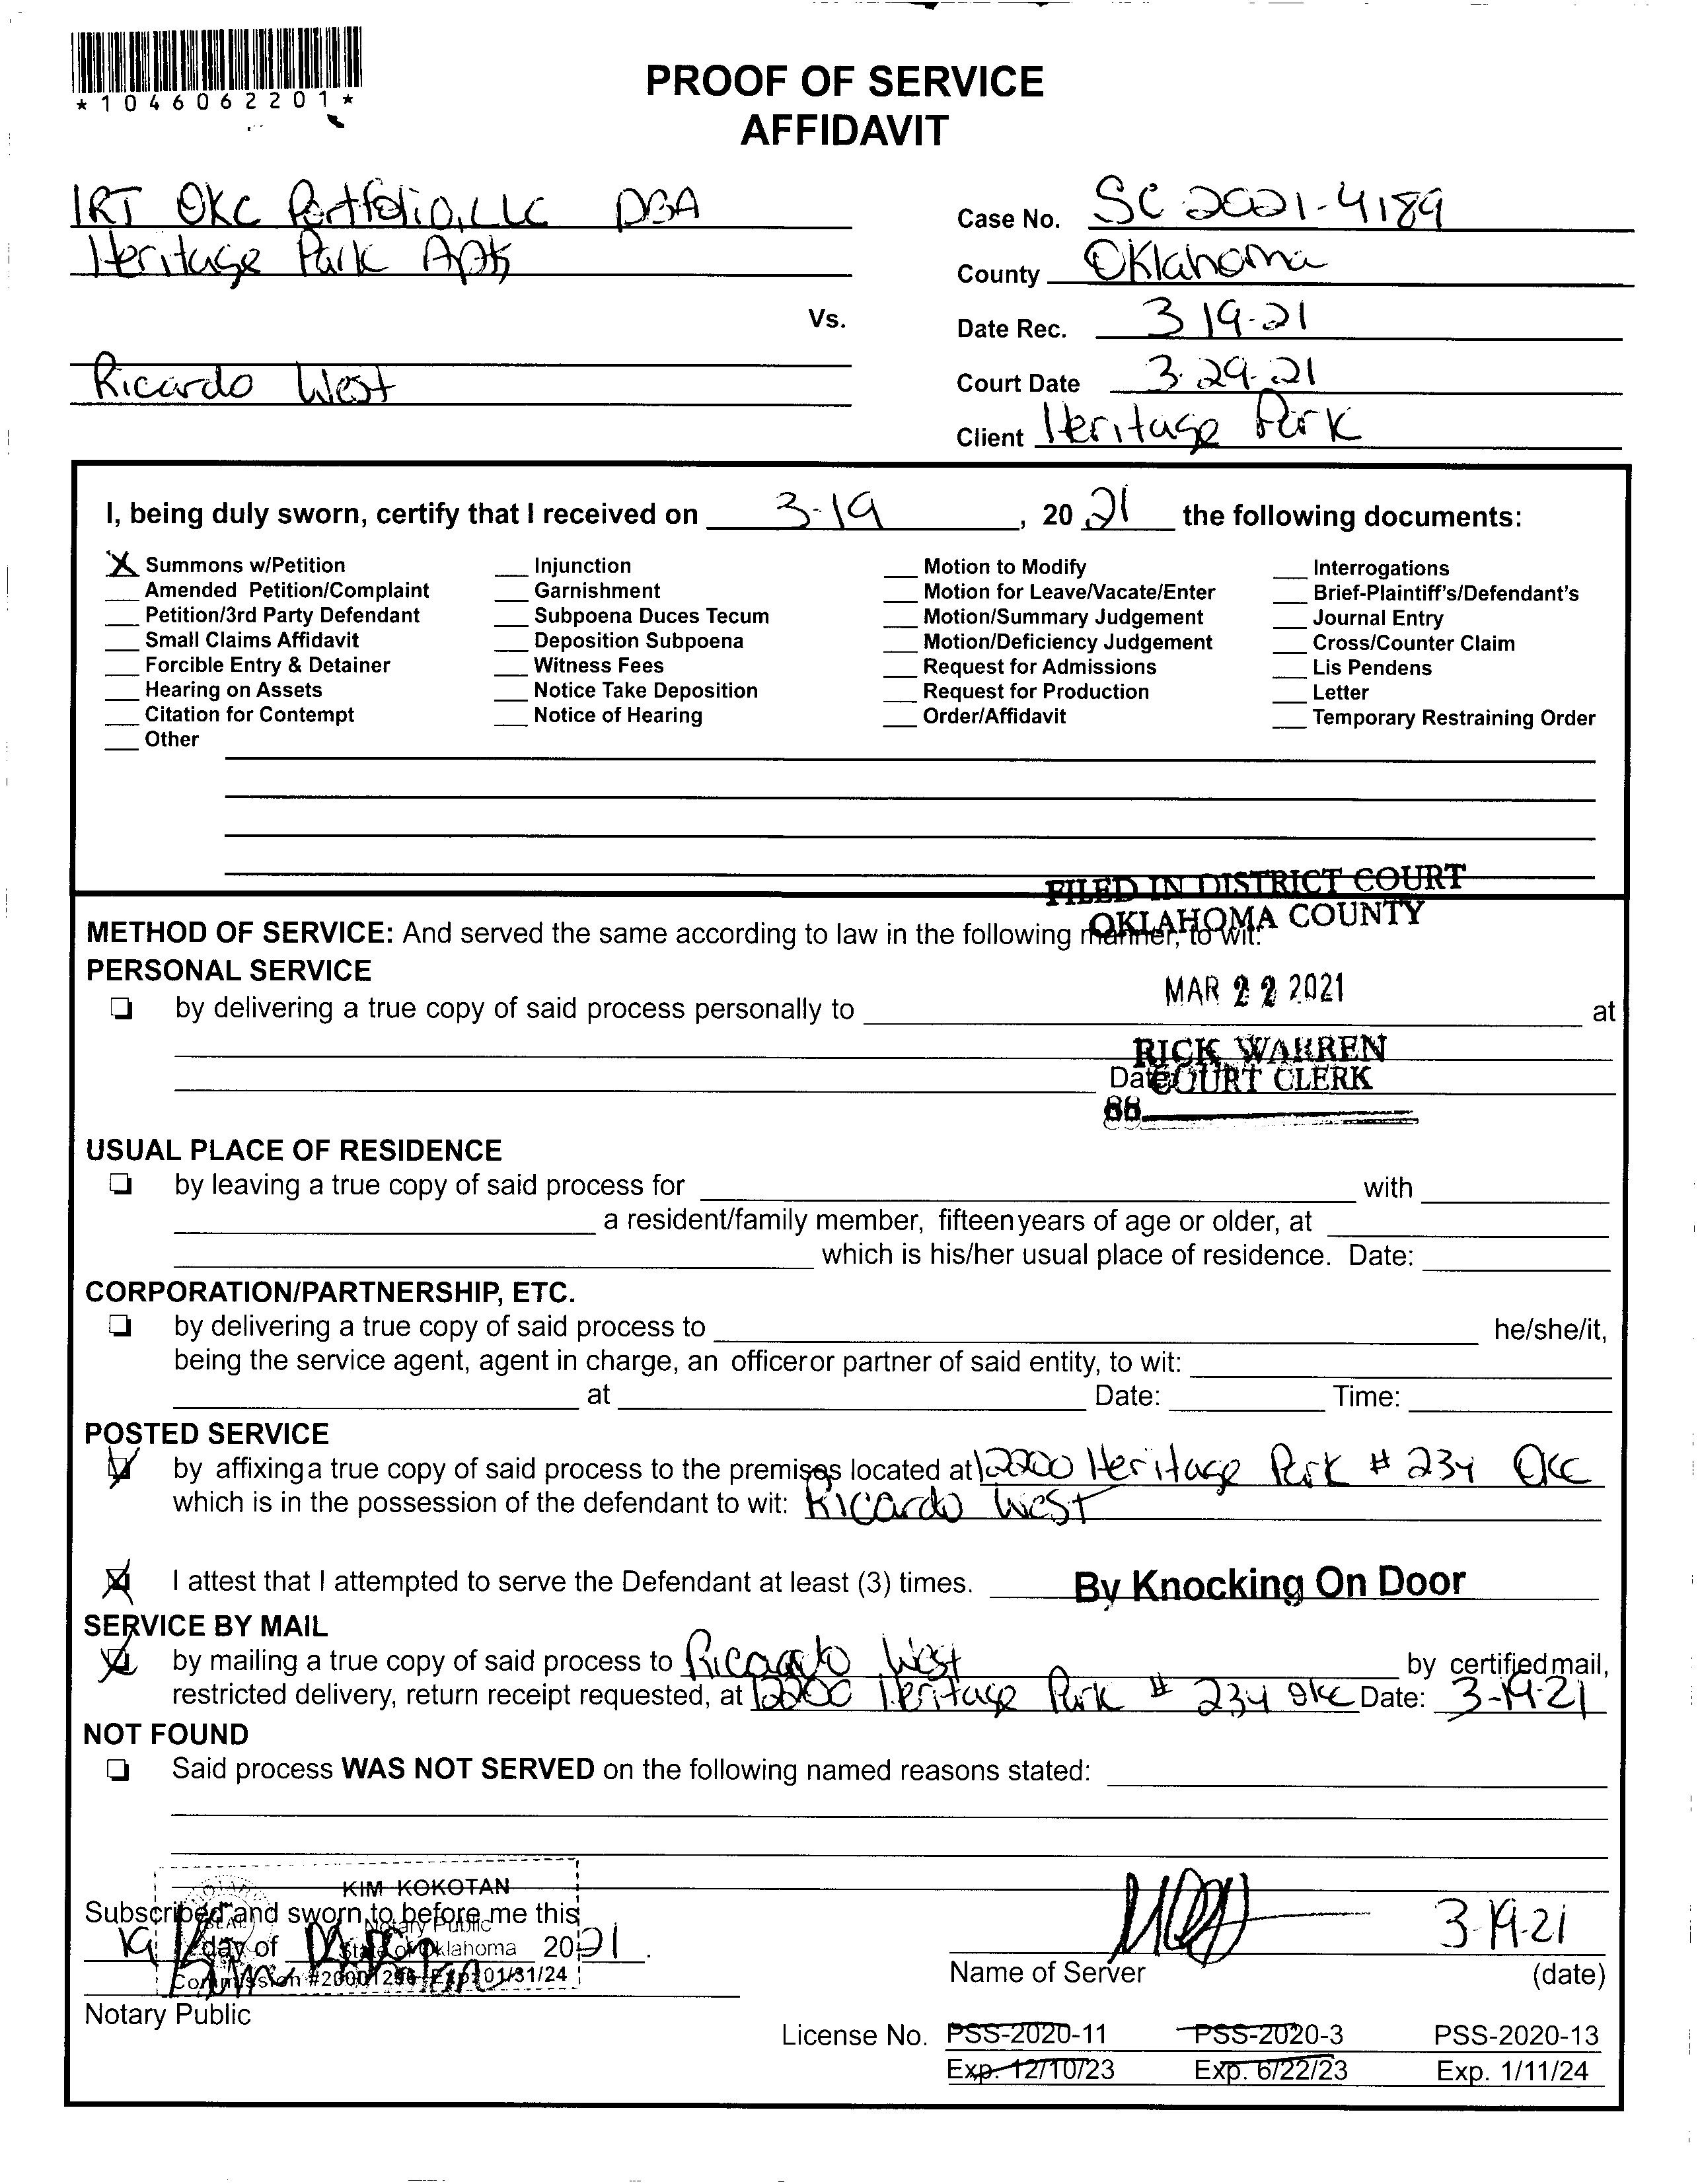 *1046062201*
PROOF OF SERVICE
AFFIDAVIT
IRT OKC Portfolio, LLC DBA
Heritage Park Apts
Vs.
Ricardo West
Case No. SC 2021-4189
County Oklahoma
Date Rec. 3 19-21
Court Date 3-29-21
Client Heritage Park
I, being duly sworn, certify that I received on 3-19, 20 21 the following documents:
X Summons w/Petition
Amended Petition/Complaint
Petition/3rd Party Defendant
Small Claims Affidavit
Forcible Entry & Detainer
Hearing on Assets
Citation for Contempt
Other
Injunction
Garnishment
Subpoena Duces Tecum
Deposition Subpoena
Witness Fees
Notice Take Deposition
Notice of Hearing
Motion to Modify
Motion for Leave/Vacate/Enter
Motion/Summary Judgement
Motion/Deficiency Judgement
Request for Admissions
Request for Production
Order/Affidavit
Interrogations
Brief-Plaintiff's/Defendant's
Journal Entry
Cross/Counter Claim
Lis Pendens
Letter
Temporary Restraining Order
FILED IN DISTRICT COURT
OKLAHOMA COUNTY
MAR 22 2021
RICK WARREN
COURT CLERK
88
METHOD OF SERVICE: And served the same according to law in the following manner, to wit:
PERSONAL SERVICE
by delivering a true copy of said process personally to at
Date:
USUAL PLACE OF RESIDENCE
by leaving a true copy of said process for with
a resident/family member, fifteen years of age or older, at
which is his/her usual place of residence. Date:
CORPORATION/PARTNERSHIP, ETC.
by delivering a true copy of said process to he/she/it,
being the service agent, agent in charge, an officer or partner of said entity, to wit:
at Date: Time:
POSTED SERVICE
by affixing a true copy of said process to the premises located at 12200 Heritage Park # 234 OKC
which is in the possession of the defendant to wit: Ricardo West
I attest that I attempted to serve the Defendant at least (3) times. By Knocking On Door
SERVICE BY MAIL
by mailing a true copy of said process to Ricardo West by certified mail,
restricted delivery, return receipt requested, at 12200 Heritage Park # 234 OKC Date: 3-19-21
NOT FOUND
Said process WAS NOT SERVED on the following named reasons stated:
KIM KOKOTAN
Notary Public
State of Oklahoma
Commission #20001296 Exp: 01/31/24
Subscribed and sworn to before me this
19 day of 2021.
Notary Public
3-19-21
Name of Server (date)
License No. PSS-2020-11 PSS-2020-3 PSS-2020-13
Exp. 12/10/23 Exp. 6/22/23 Exp. 1/11/24